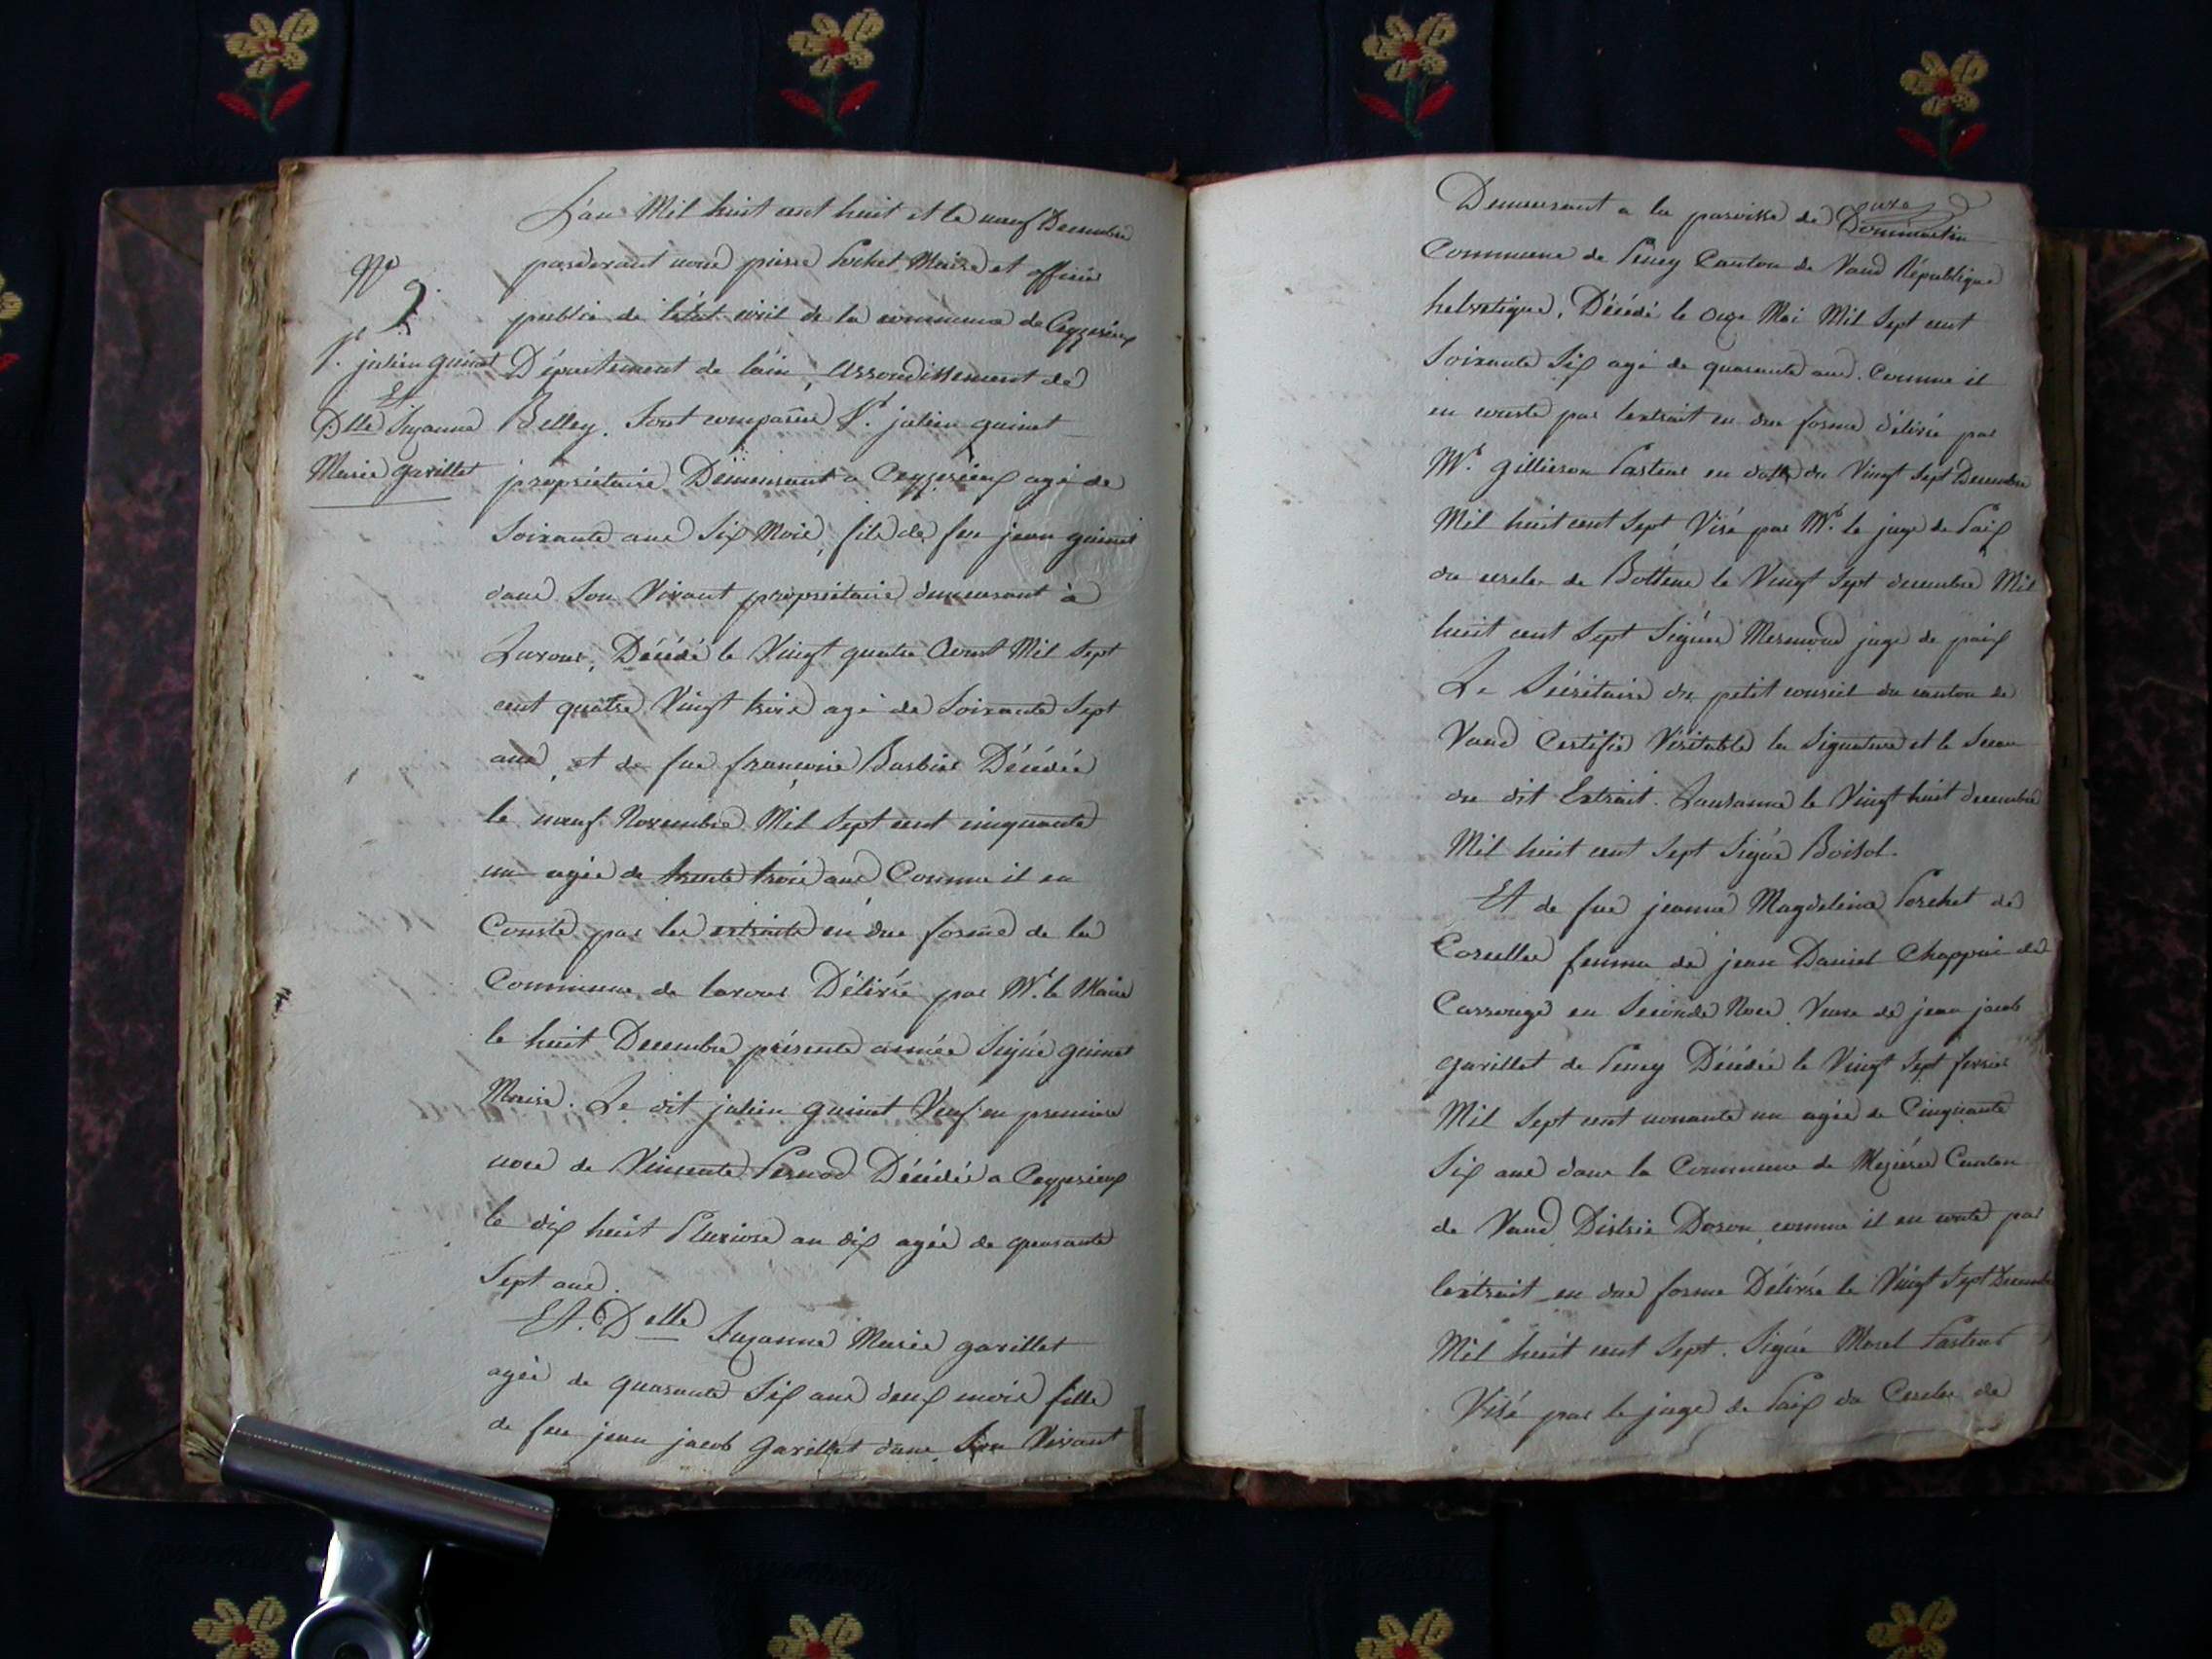 N° 9.
Sr. julien guinet
Et
Dlle Suzanne
Marie gavillet
L'an Mil huit cent huit et le neuf Decembre
pardevant nous pierre Pochet Maire et officier
public de l'état civil de la commune de Ceyzerieux
Département de l'ain, Arrondissement de
Belley. Sont comparus Sr. julien guinet
propriétaire Demeurant a Ceyzerieux agé de
Soixante ans Six Mois, fils de feu jean guinet
dans Son Vivant propriétaire demeurant à
Lavour, Décédé le Vingt quatre Aoust Mil Sept
cent quatre Vingt treize agé de Soixante Sept
ans, et de fue françoise Barbier Décédée
le neuf Novembre Mil Sept cent cinquante
un agée de trente trois ans Comme il en
Conste par les extraits en due forme de la
Commune de lavour Délivré par Mr. le Maire
le huit Decembre présente année Signé guinet
Maire. Le dit julien guinet Veuf en premiere
noce de Vincente Pernod Décédée a Ceyzerieux
le dix huit Pluviose an dix agée de quarante
Sept ans.
Et. Delle Suzanne Marie gavillet
agée de quarante Six ans deux mois fille
de feu jean jacob gavillet dans Son Vivant
Demeurant a la paroisse de Dommartin
Commune de Peney Canton de Vaud République
helvetique, Décédé le onze Mai Mil Sept cent
Soixante Six agé de quarante ans. Comme il
en conste par l'extrait en due forme délivré par
Mr. gillieron Pasteur en datte du Vingt Sept Decembre
Mil huit cent Sept Visé par Mr. le juge de Paix
du cercle de Bottens le Vingt Sept decembre Mil
huit cent Sept Signé Mermoud juge de paix
Le Sécrétaire du petit conseil du canton de
Vaud Certifie Véritable la Signature et le Sceau
du dit Extrait. Lausanne le Vingt huit decembre
Mil huit cent Sept Signé Boisot.
Et de fue jeanne Magdeleine Porchet de
Corcelles femme de jean Daniel Chappuis de
Carrouge en Seconde Noce Veuve de jean jacob
gavillet de Peney Décédée le Vingt Sept fevrier
Mil Sept cent nonante un agée de Cinquante
Six ans dans la Commune de Mezieres Canton
de Vaud District Doron comme il en conte par
l'extrait en due forme Délivré le Vingt Sept Decembre
Mil huit cent Sept. Signé Morel Pasteur
Visé par le juge de Paix du Cercle de